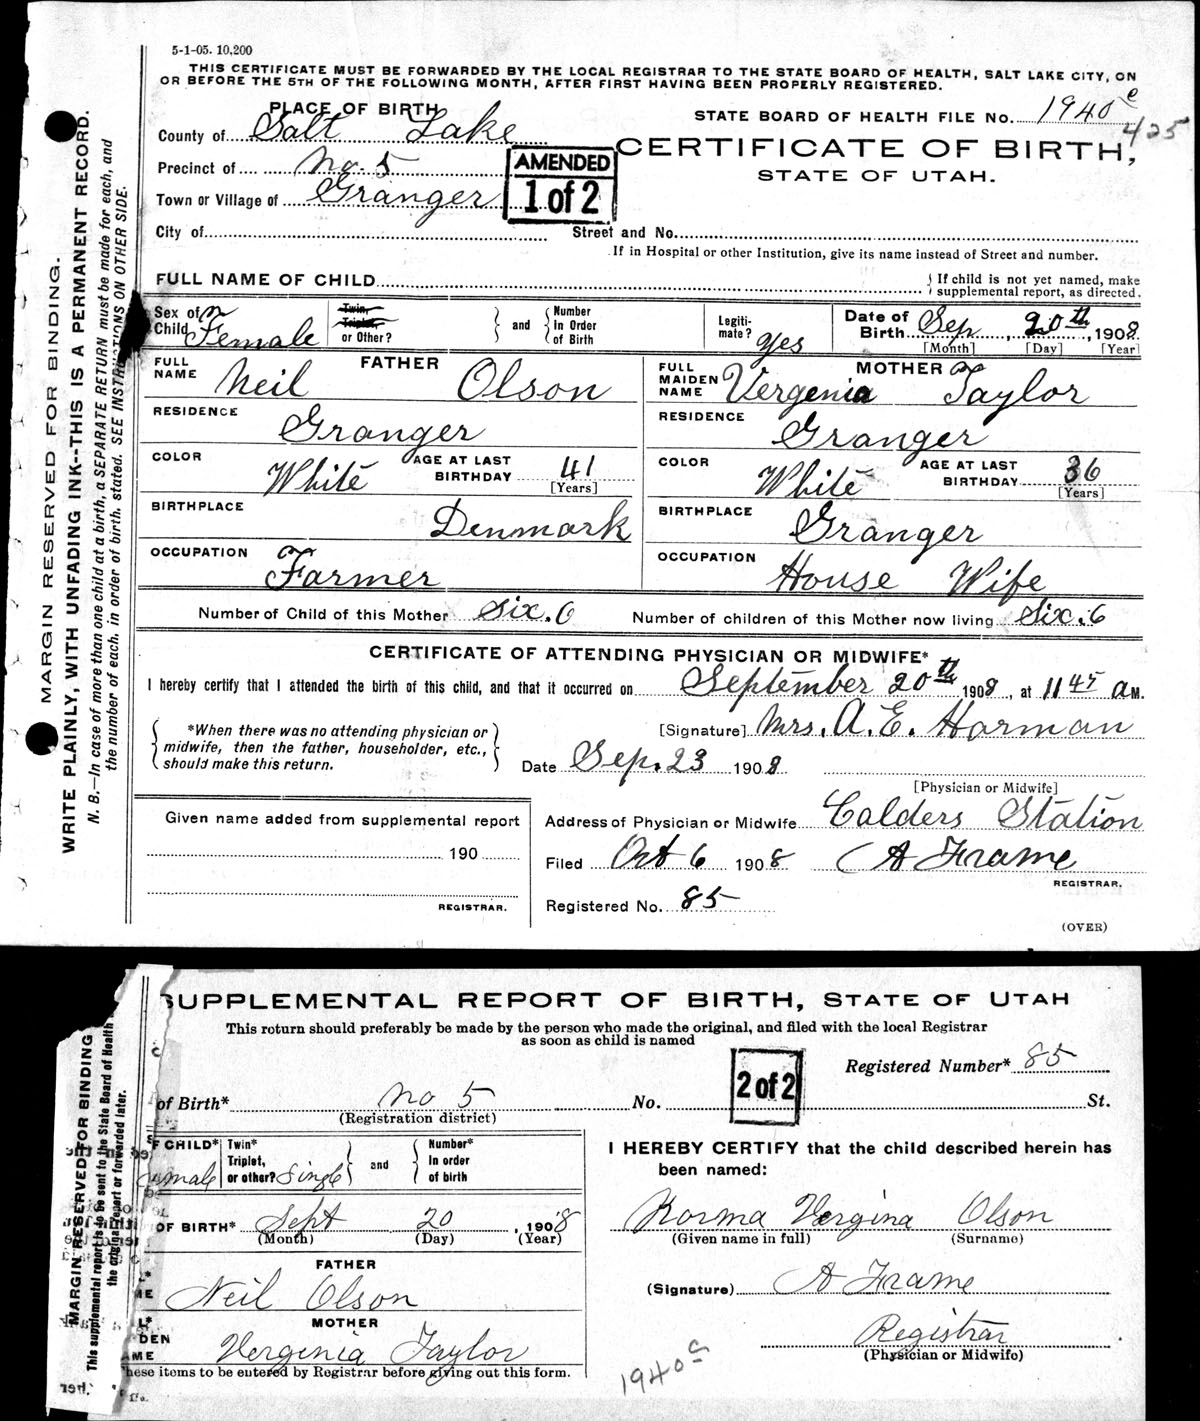 5-1-05. 10,200
THIS CERTIFICATE MUST BE FORWARDED BY THE LOCAL REGISTRAR TO THE STATE BOARD OF HEALTH, SALT LAKE CITY, ON
OR BEFORE THE 5TH OF THE FOLLOWING MONTH, AFTER FIRST HAVING BEEN PROPERLY REGISTERED.
PLACE OF BIRTH
STATE BOARD OF HEALTH FILE NO. 1940 e
425
County of Salt Lake
CERTIFICATE OF BIRTH,
STATE OF UTAH.
Precinct of No. 5
AMENDED
1 of 2
Town or Village of Granger
City of
Street and No.
If in Hospital or other Institution, give its name instead of Street and number.
FULL NAME OF CHILD
If child is not yet named, make
supplemental report, as directed.
Sex of
Child Female
Twin,
Triplet,
or Other?
and
Number
In Order
of Birth
Legiti-
mate? yes
Date of
Birth Sep. 20th, 1908.
[Month] [Day] [Year]
FATHER
FULL
NAME Neil Olson
RESIDENCE
Granger
COLOR White
AGE AT LAST
BIRTHDAY 41
[Years]
BIRTHPLACE
Denmark
OCCUPATION
Farmer
MOTHER
FULL
MAIDEN
NAME Vergenia Taylor
RESIDENCE
Granger
COLOR White
AGE AT LAST
BIRTHDAY 36
[Years]
BIRTHPLACE
Granger
OCCUPATION
House Wife
Number of Child of this Mother Six. 6
Number of children of this Mother now living Six. 6
CERTIFICATE OF ATTENDING PHYSICIAN OR MIDWIFE*
I hereby certify that I attended the birth of this child, and that it occurred on September 20th 1908, at 11 45 a M.
*When there was no attending physician or
midwife, then the father, householder, etc.,
should make this return.
[Signature] Mrs. A. E. Harman
Date Sep. 23 1908
[Physician or Midwife]
Given name added from supplemental report
190
REGISTRAR.
Address of Physician or Midwife Calders Station
Filed Oct 6 1908
A Frame
REGISTRAR.
Registered No. 85
(OVER)
MARGIN RESERVED FOR BINDING.
WRITE PLAINLY, WITH UNFADING INK--THIS IS A PERMANENT RECORD.
N. B.—In case of more than one child at a birth, a SEPARATE RETURN must be made for each, and
the number of each, in order of birth, stated. SEE INSTRUCTIONS ON OTHER SIDE.
SUPPLEMENTAL REPORT OF BIRTH, STATE OF UTAH
This return should preferably be made by the person who made the original, and filed with the local Registrar
as soon as child is named
2 of 2
Registered Number* 85
of Birth* No 5
(Registration district)
No.
St.
F CHILD*
Twin*
Triplet,
or other? Single
and
Number*
In order
of birth
OF BIRTH* Sept 20, 1908
(Month) (Day) (Year)
FATHER
Neil Olson
MOTHER
DEN
AME Verginia Taylor
hese items to be entered by Registrar before giving out this form.
I HEREBY CERTIFY that the child described herein has
been named:
Norma Vergina Olson
(Given name in full) (Surname)
(Signature) A Frame
Registrar
(Physician or Midwife)
1940
MARGIN RESERVED FOR BINDING
This supplemental report is to be sent to the State Board of Health
the original report or forwarded later.